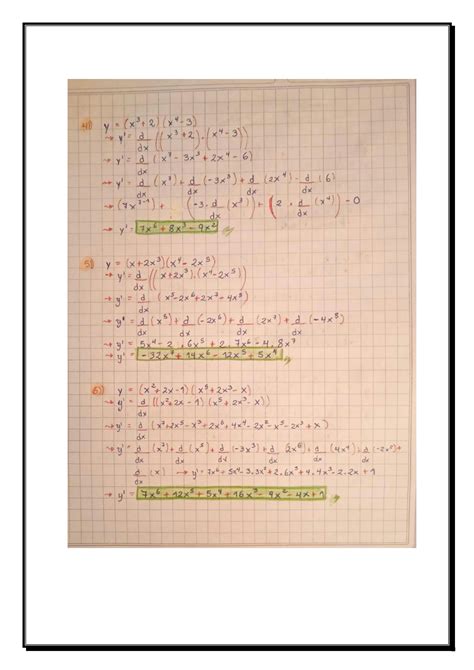 4) y = (x³+2)(x⁴-3)
→ y' = d/dx ((x³+2)·(x⁴-3))
→ y' = d/dx (x⁷ - 3x³ + 2x⁴ - 6)
→ y' = d/dx (x⁷) + d/dx (-3x³) + d/dx (2x⁴) - d/dx (6)
→ (7x⁷⁻¹) + (-3 · d/dx (x³)) + (2 · d/dx (x⁴)) - 0
→ y' = 7x⁶ + 8x³ - 9x²
5) y = (x+2x³)(x⁴-2x⁵)
→ y' = d/dx ((x+2x³)·(x⁴-2x⁵))
→ y' = d/dx (x⁵-2x⁶+2x⁷-4x⁸)
→ y' = d/dx (x⁵) + d/dx (-2x⁶) + d/dx (2x⁷) + d/dx (-4x⁸)
→ y' = 5x⁴ - 2 . 6x⁵ + 2 . 7x⁶ - 4 . 8x⁷
→ y' = -32x⁷ + 14x⁶ - 12x⁵ + 5x⁴
6) y = (x²+2x-1)(x⁵+2x³-x)
→ y' = d/dx ((x²+2x-1)(x⁵+2x³-x))
→ y' = d/dx (x⁷+2x⁵-x³+2x⁶+4x⁴-2x²-x⁵-2x³+x)
→ y' = d/dx (x⁷) + d/dx (x⁵) + d/dx (-3x³) + d/dx (2x⁶) + d/dx (4x⁴) + d/dx (-2x²) +
d/dx (x) → y' = 7x⁶ + 5x⁴ - 3.3x² + 2.6x⁵ + 4.4x³ - 2.2x + 1
→ y' = 7x⁶ + 12x⁵ + 5x⁴ + 16x³ - 9x² - 4x + 1